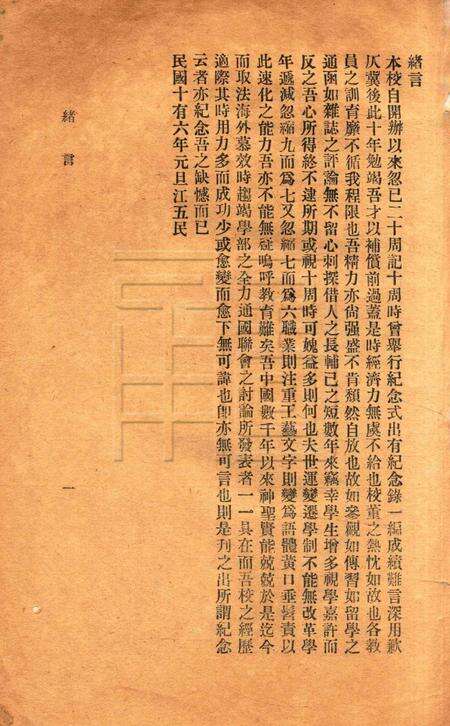 緒言
本校自開辦以來忽已二十周記十周時曾舉行紀念式出有紀念錄一編成績難言深用歉
仄冀後此十年勉竭吾才以補償前過蓋是時經濟力無虞不給也校董之熱忱如故也各教
員之訓育靡不循我程限也吾精力亦尚强盛不肯頹然自放也故如參觀如傳習如留學之
通函如雜誌之評論無不留心刺探借人之長輔己之短數年來竊幸學生增多視學嘉許而
反之吾心所得終不逮所期或視十周時可媿益多則何也夫世運變遷學制不能無改革學
年遞減忽縮九而爲七又忽縮七而爲六職業則注重工藝文字則變爲語體黃口垂髫責以
此速化之能力吾亦不能無疑嗚呼教育難矣吾中國數千年以來神聖賢能兢兢於是迄今
而取法海外慕效時趨竭學部之全力通國聯會之討論所發表者一一具在而吾校之經歷
適際其時用力多而成功少或愈變而愈下無可諱也卽亦無可言也則是刋之出所謂紀念
云者亦紀念吾之缺憾而已
民國十有六年元旦江五民
緒言
一